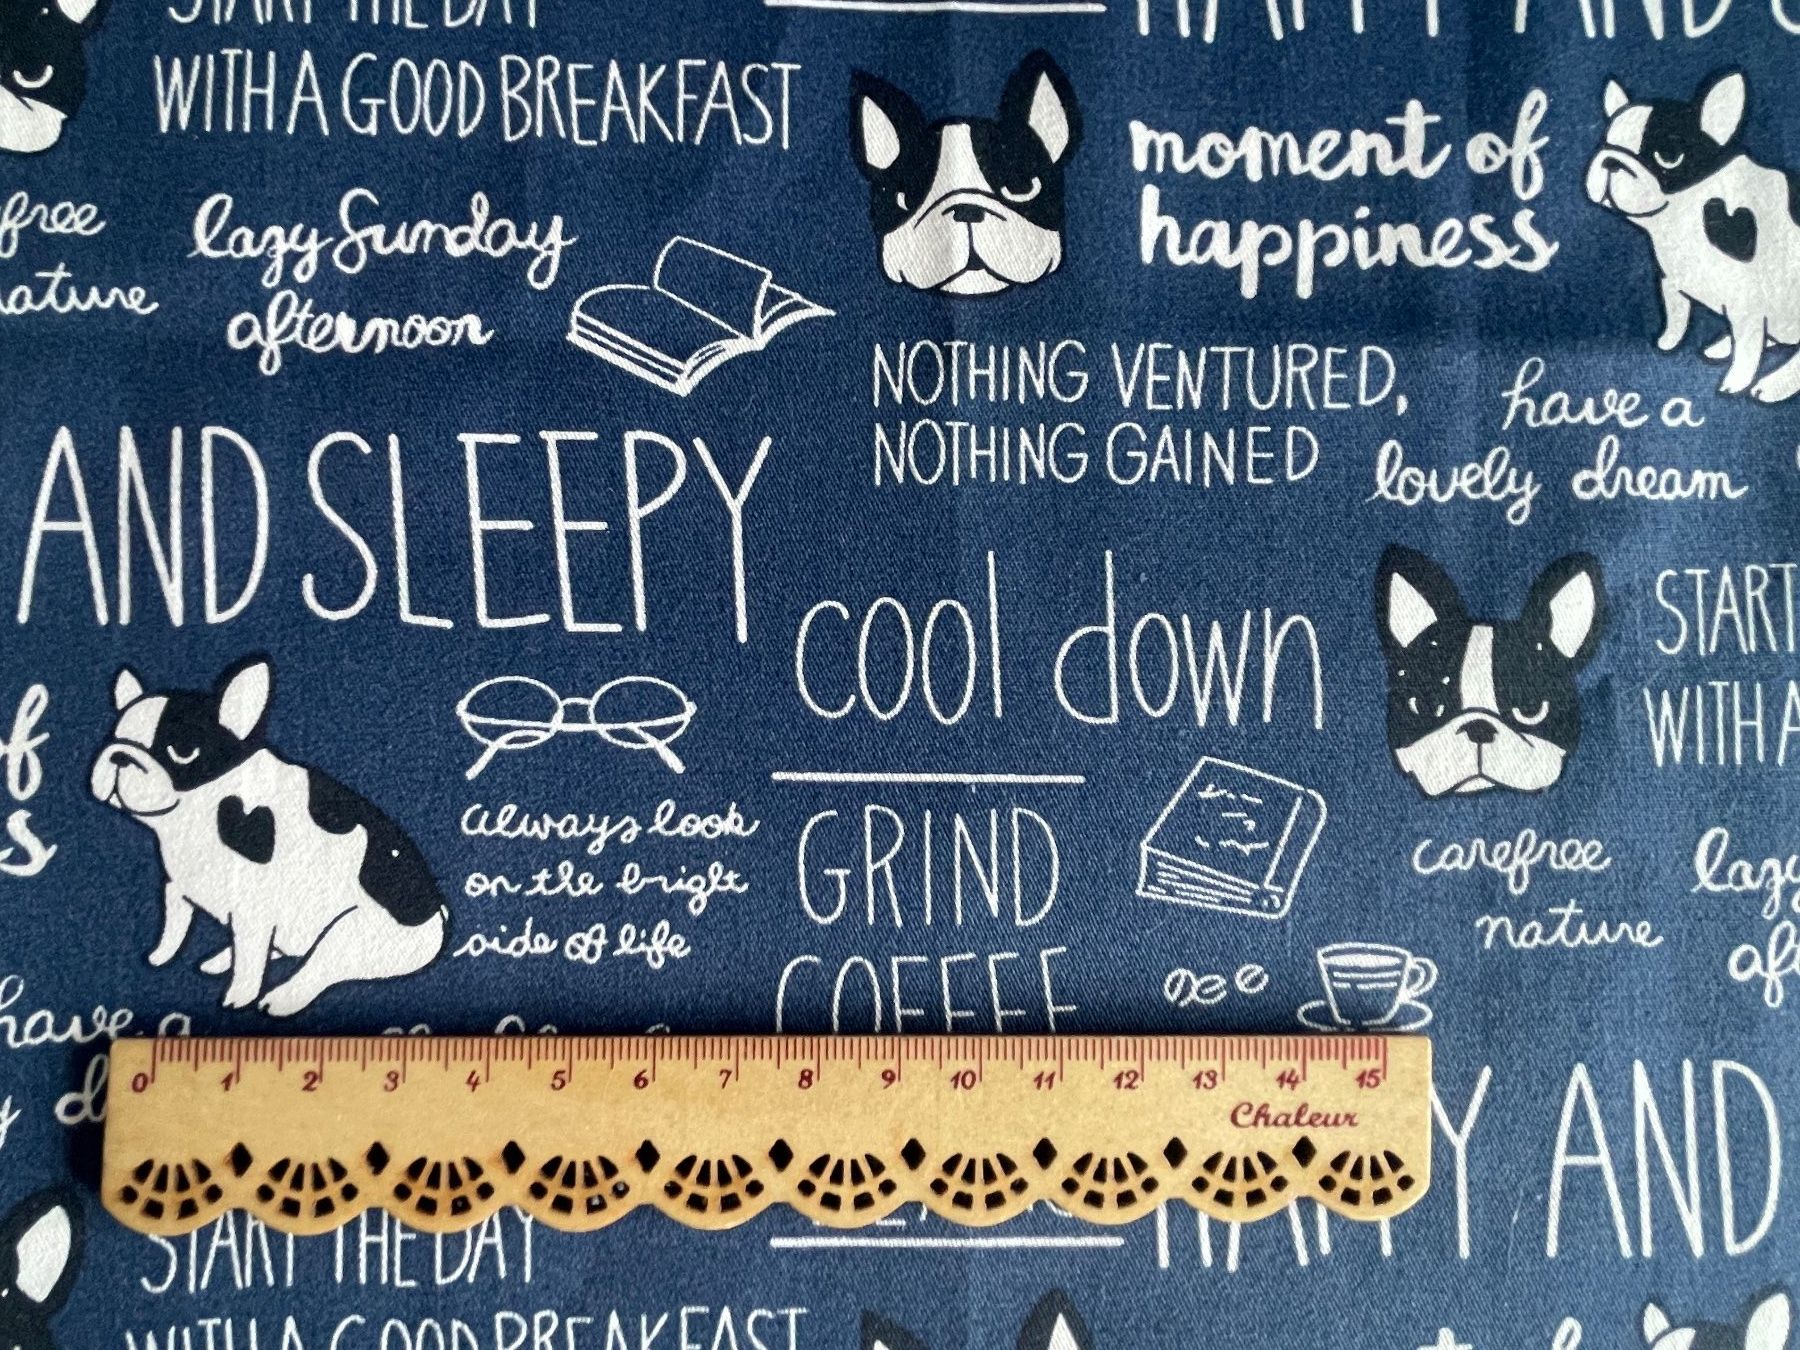 START THE DAY
WITH A GOOD BREAKFAST
HAPPY AND
moment of
happiness
free
nature
lazy Sunday
afternoon
NOTHING VENTURED,
NOTHING GAINED
have a
lovely dream
AND SLEEPY
cool down
START
WITH A
of
s
always look
on the bright
side of life
GRIND
COFFEE
carefree
nature
lazy
af
have a
y d
0 1 2 3 4 5 6 7 8 9 10 11 12 13 14 15
Chaleur
HAPPY AND
START THE DAY
WITH A GOOD BREAKFAST